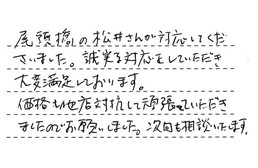 尾頭橋しの松井さんが対応してくだ
さいました。誠実な対応をしていただき
大変満足しております。
価格も他店対抗して頑張っていただき
ましたのでお願いしました。次回も相談いたします。